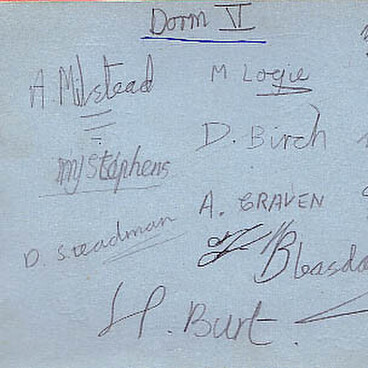 Dorm V
A. Milstead
M Logie
D. Birch
MJ Stephens
A. GRAVEN
D. Steadman
Bleasda
P. Burt.